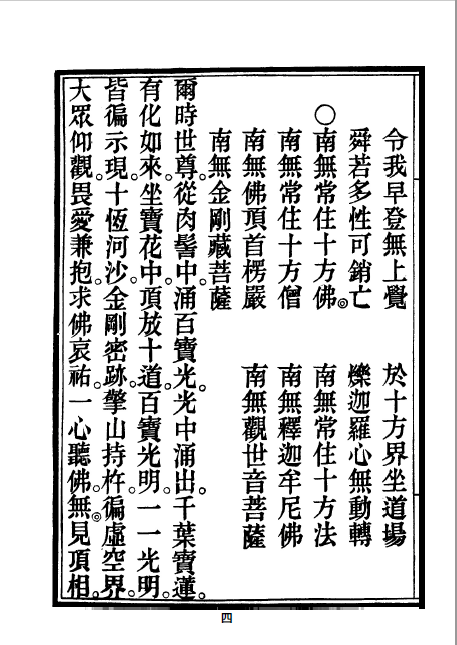 令我早登無上覺　於十方界坐道場
舜若多性可銷亡　爍迦羅心無動轉◎
○南無常住十方佛　南無常住十方法
南無常住十方僧　南無釋迦牟尼佛
南無佛頂首楞嚴　南無觀世音菩薩
南無金剛藏菩薩
爾時世尊。從肉髻中。涌百寶光。光中涌出。千葉寶蓮。
有化如來。坐寶花中。頂放十道。百寶光明。一一光明。
皆徧示現。十恆河沙。金剛密跡。擎山持杵。徧虛空界。
大眾仰觀。畏愛兼抱。求佛哀祐。一心聽佛。◎無見頂相。
四